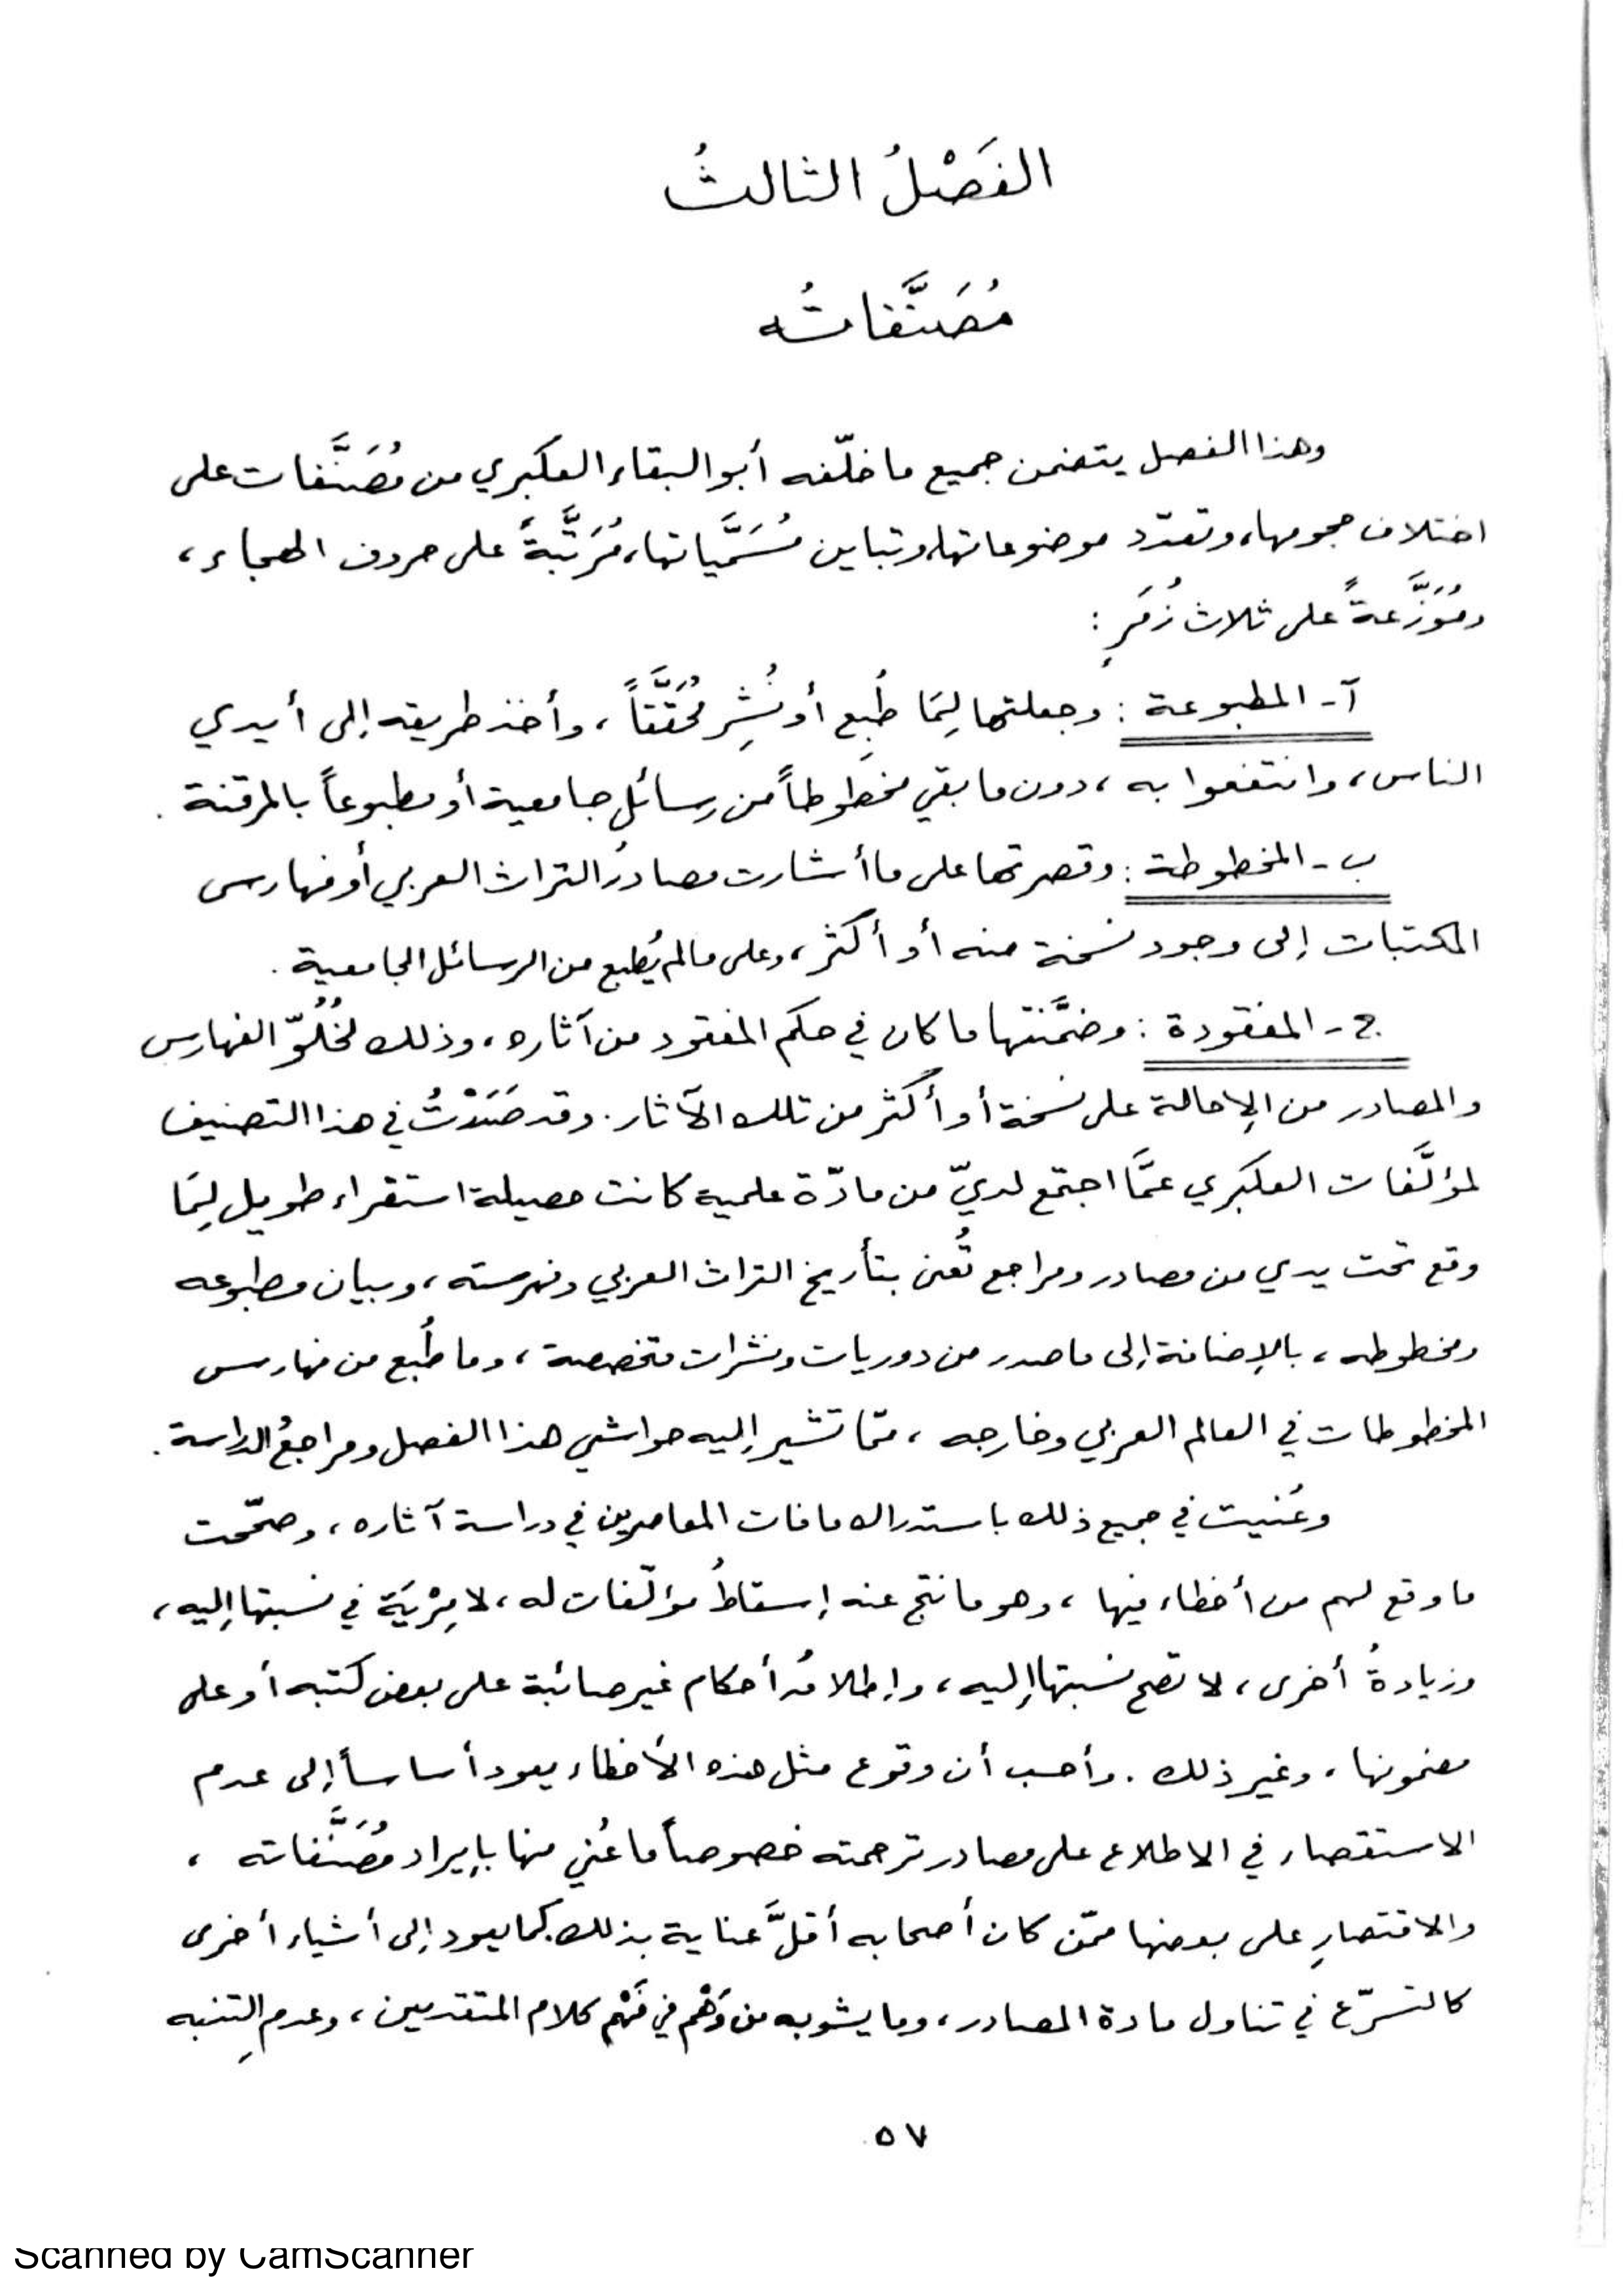 الفَصْلُ الثالثُ
مُصَنَّفاتُه
وهذا الفصل يتضمن جميع ما خلّفه أبو البقاء العكبري من مُصَنَّفات على
اختلاف حجومها، وتعدّد موضوعاتها، وتباين مُسَمَّياتها، مُرَتَّبةً على حروف الهجاء،
ومُوَزَّعةً على ثلاث زُمَرٍ :
آ - المطبوعة : وجعلتها لِمَا طُبِع أو نُشِر مُحَقَّقاً، وأخذ طريقه إلى أيدي
الناس، وانتفعوا به، دون ما بقي مخطوطاً من رسائل جامعية أو مطبوعاً بالمرقنة .
ب - المخطوطة : وقصرتها على ما أشارت مصادرُ التراث العربي أو فهارس
المكتبات إلى وجود نسخة منه أو أكثر، وعلى ما لم يُطبع من الرسائل الجامعية .
ج - المفقودة : وضمَّنتها ما كان في حكم المفقود من آثاره، وذلك لخُلُوّ الفهارس
والمصادر من الإحالة على نسخة أو أكثر من تلك الآثار. وقد صَدَرْتُ في هذا التصنيف
لمؤلَّفات العكبري عمَّا اجتمع لديّ من مادّة علمية كانت حصيلة استقراء طويل لِمَا
وقع تحت يدي من مصادر ومراجع تُعنى بتأريخ التراث العربي وفهرسته، وبيان مطبوعه
ومخطوطه، بالإضافة إلى ما صدر من دوريات ونشرات متخصصة، وما طُبع من فهارس
المخطوطات في العالم العربي وخارجه، ممّا تشير إليه حواشي هذا الفصل ومراجعُ الدراسة.
وعُنيت في جميع ذلك باستدراك ما فات المعاصرين في دراسة آثاره، وصحّحت
ما وقع لهم من أخطاء فيها، وهو ما نتج عنه إسقاطُ مؤلّفات له، لا مِرْيَة في نسبتها إليه،
وزيادةُ أخرى، لا تصح نسبتها إليه، وإطلاقُ أحكام غير صائبة على بعض كتبه أو على
مضمونها، وغير ذلك . وأحسب أن وقوع مثل هذه الأخطاء يعود أساساً إلى عدم
الاستقصاء في الاطلاع على مصادر ترجمته خصوصاً ما عُني منها بإيراد مُصَنَّفاته ،
والاقتصارِ على بعضها ممّن كان أصحابه أقلَّ عناية بذلك. كما يعود إلى أشياء أخرى
كالتسرّع في تناول مادة المصادر، وما يشوبه من وَهْم في فَهْم كلام المتقدمين، وعدمِ التنبه
٥٧
Scanned by CamScanner